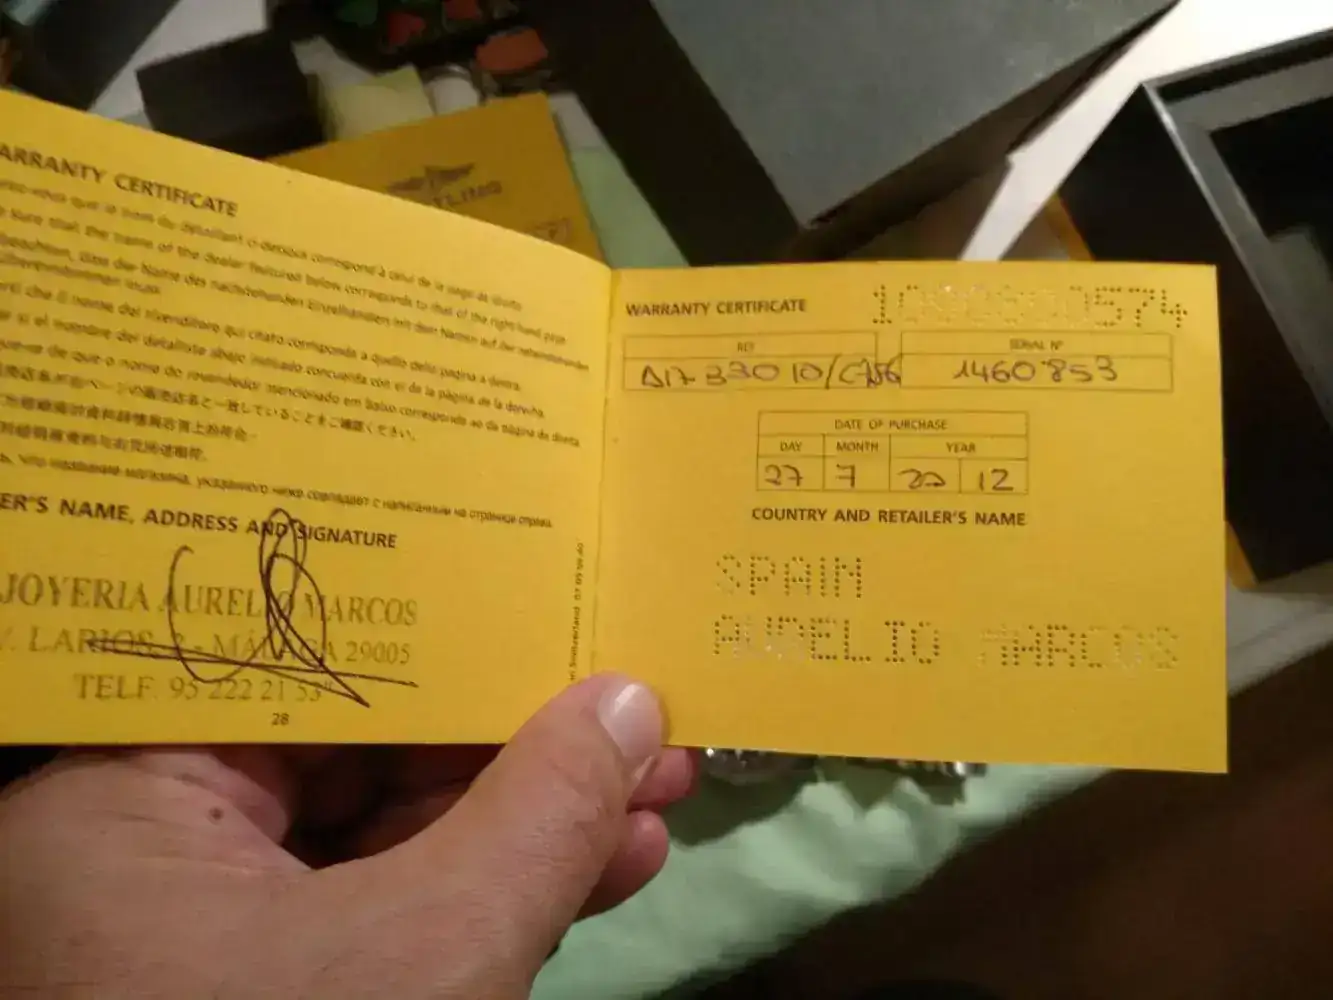 WARRANTY CERTIFICATE
que le nom du détaillant ci-dessous correspond à celui de la page de droite
sure that the name of the dealer featured below corresponds to that of the right-hand page
dass der Name des nachstehenden Einzelhändlers mit dem Namen auf der
che il nome del rivenditore qui citato corrisponda a quello della pagina a destra.
si el nombre del detallista abajo indicado concuerda con el de la página de la derecha.
de que o nome do revendedor mencionado em baixo corresponde ao da página da direita.
что название магазина, указанного ниже совпадает с написанным на странице справа.
ER'S NAME, ADDRESS AND SIGNATURE
JOYERIA AURELIO MARCOS
LARIOS, 2 - MÁLAGA 29005
TELF. 95 222 21 53
28
WARRANTY CERTIFICATE
REF.
SERIAL N°
1460853
DATE OF PURCHASE
DAY MONTH YEAR
27 7 20 12
COUNTRY AND RETAILER'S NAME
SPAIN
AURELIO MARCOS